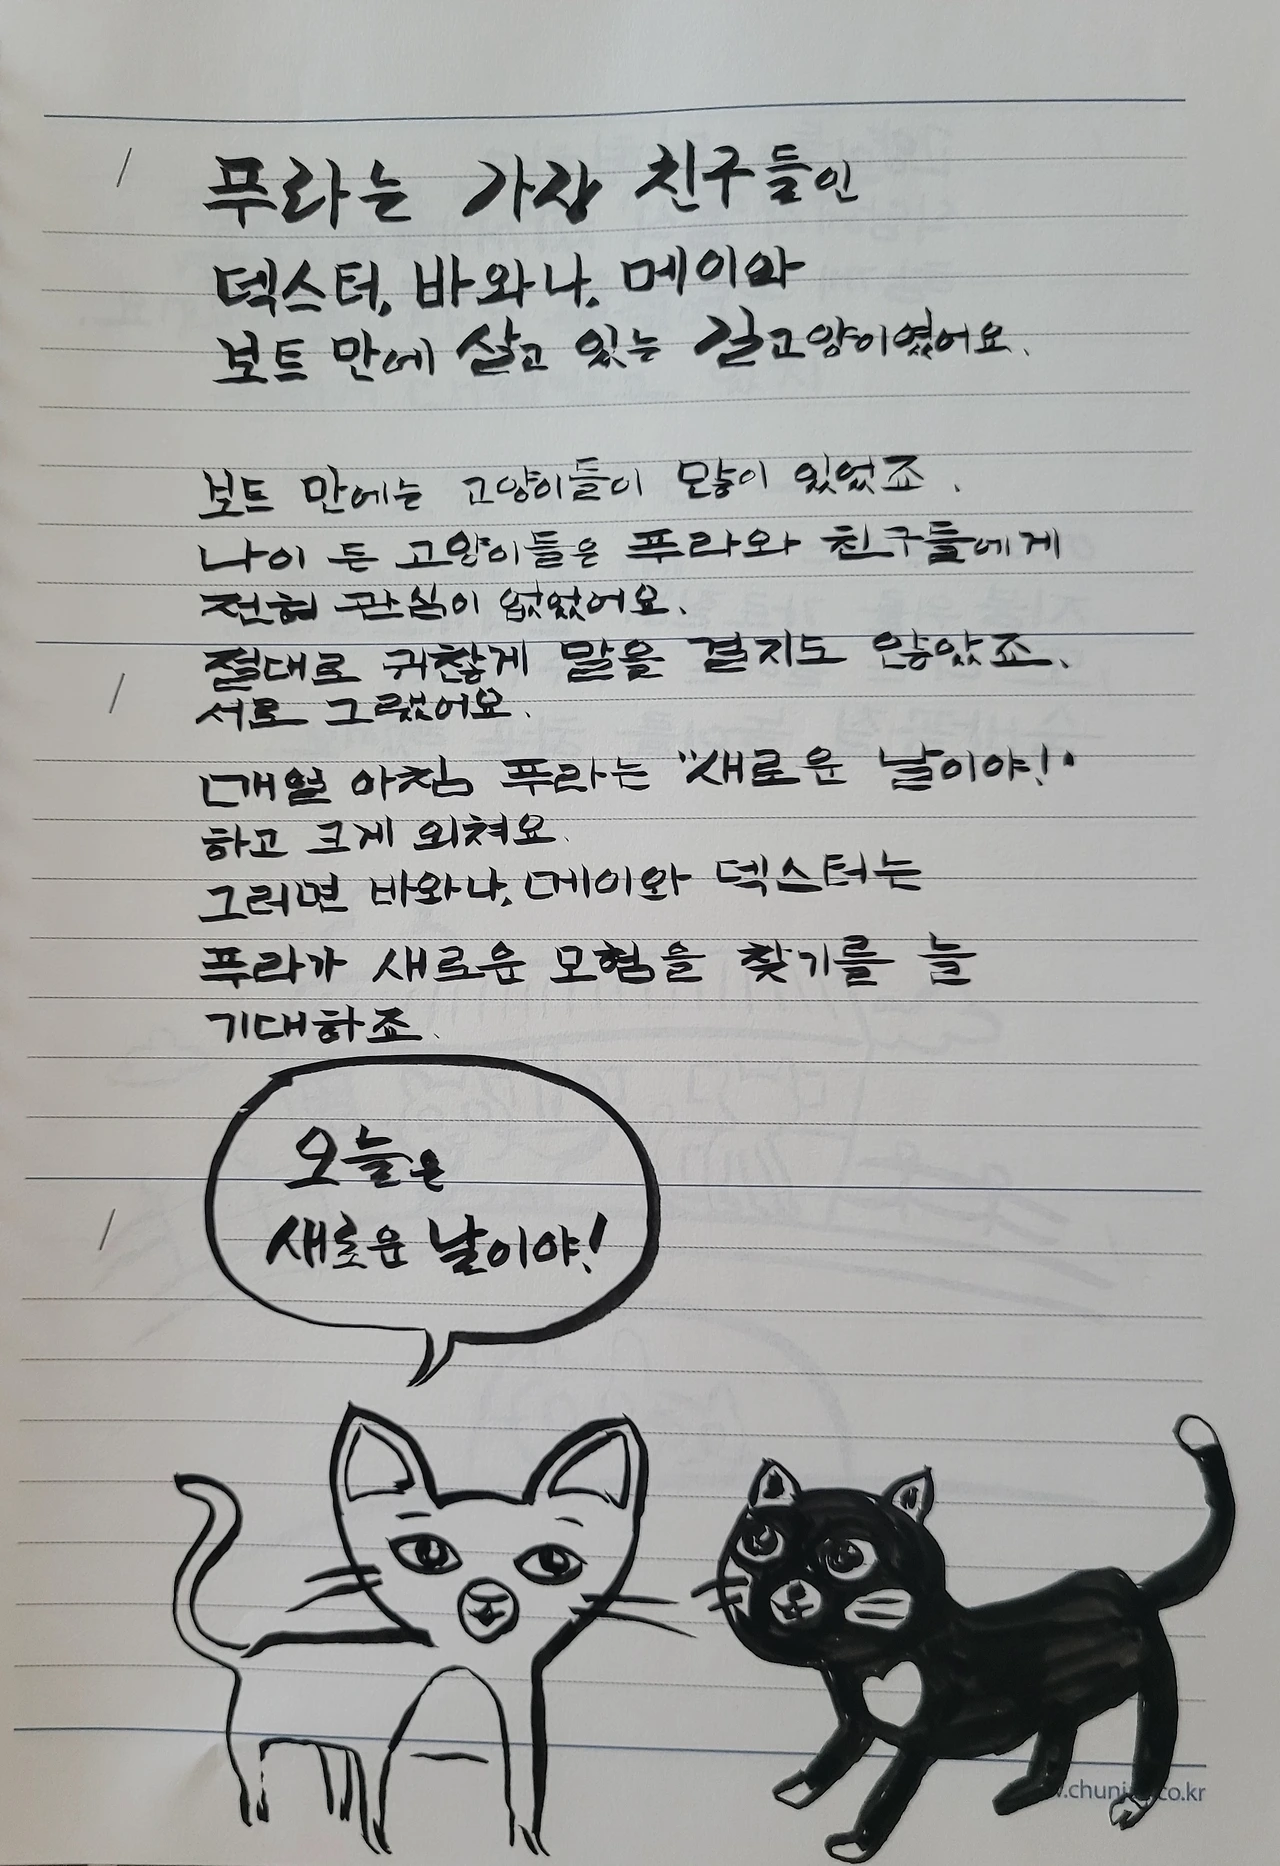 푸라는 가장 친구들인
덱스터, 바와나, 메이와
보트 만에 살고 있는 길고양이였어요.
보트 만에는 고양이들이 많이 있었죠.
나이 든 고양이들은 푸라와 친구들에게
전혀 관심이 없었어요.
절대로 귀찮게 말을 걸지도 않았죠.
서로 그랬어요.
매일 아침 푸라는 "새로운 날이야!"
하고 크게 외쳐요.
그러면 바와나, 메이와 덱스터는
푸라가 새로운 모험을 찾기를 늘
기대하죠.
오늘은
새로운 날이야!
chun co.kr